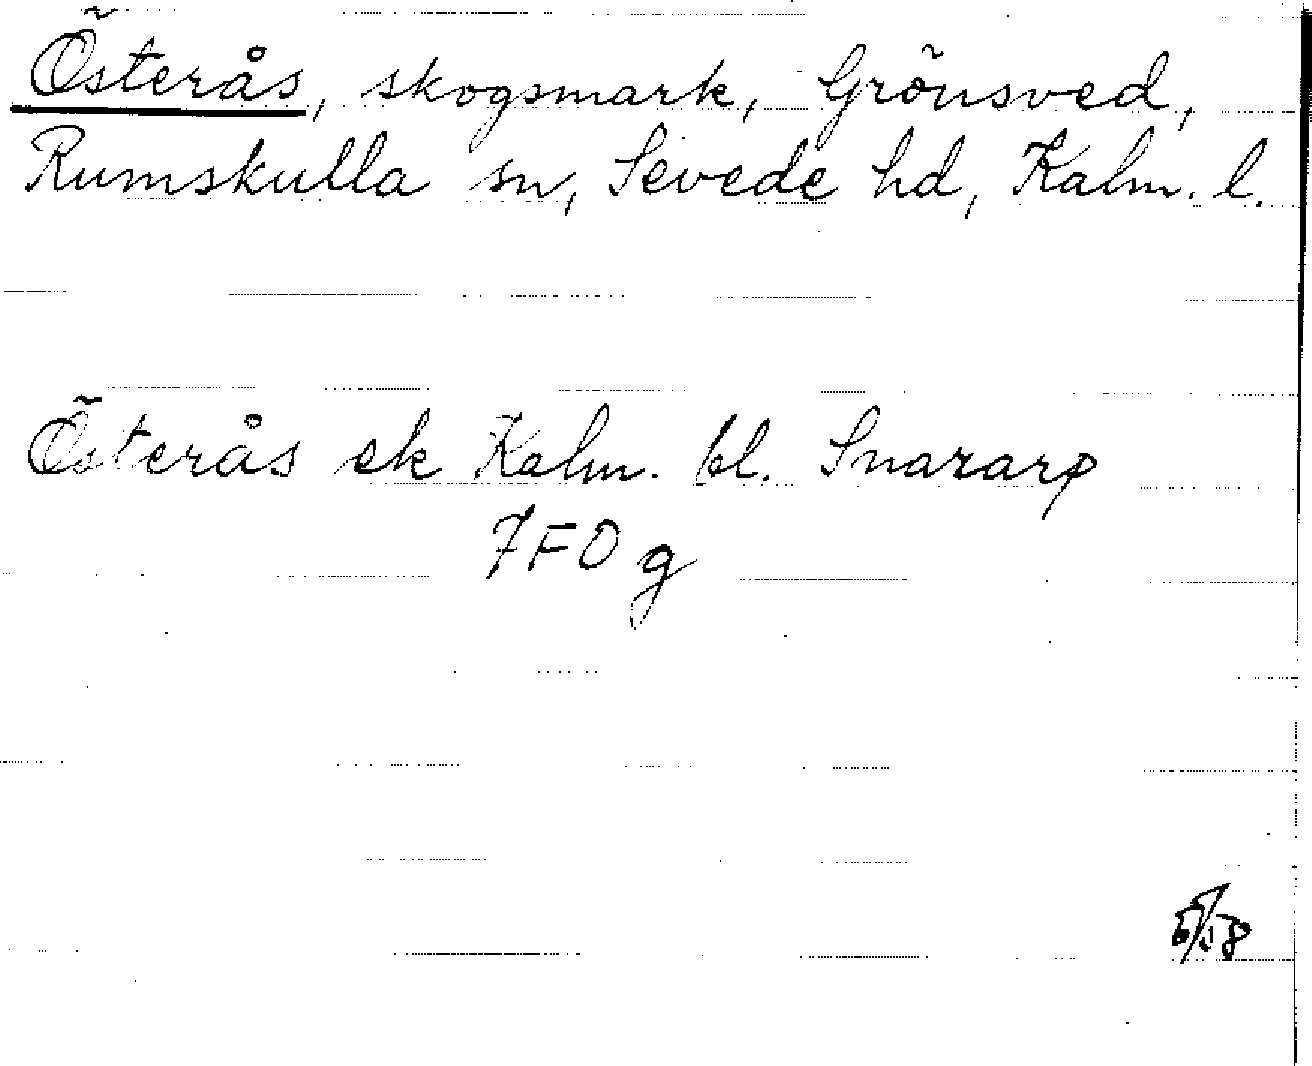 Österås, skogsmark, Grönsved,
Rumskulla sn, Sevede hd, Kalm. l.
Österås ek Kalm. bl. Snararp
7F0g